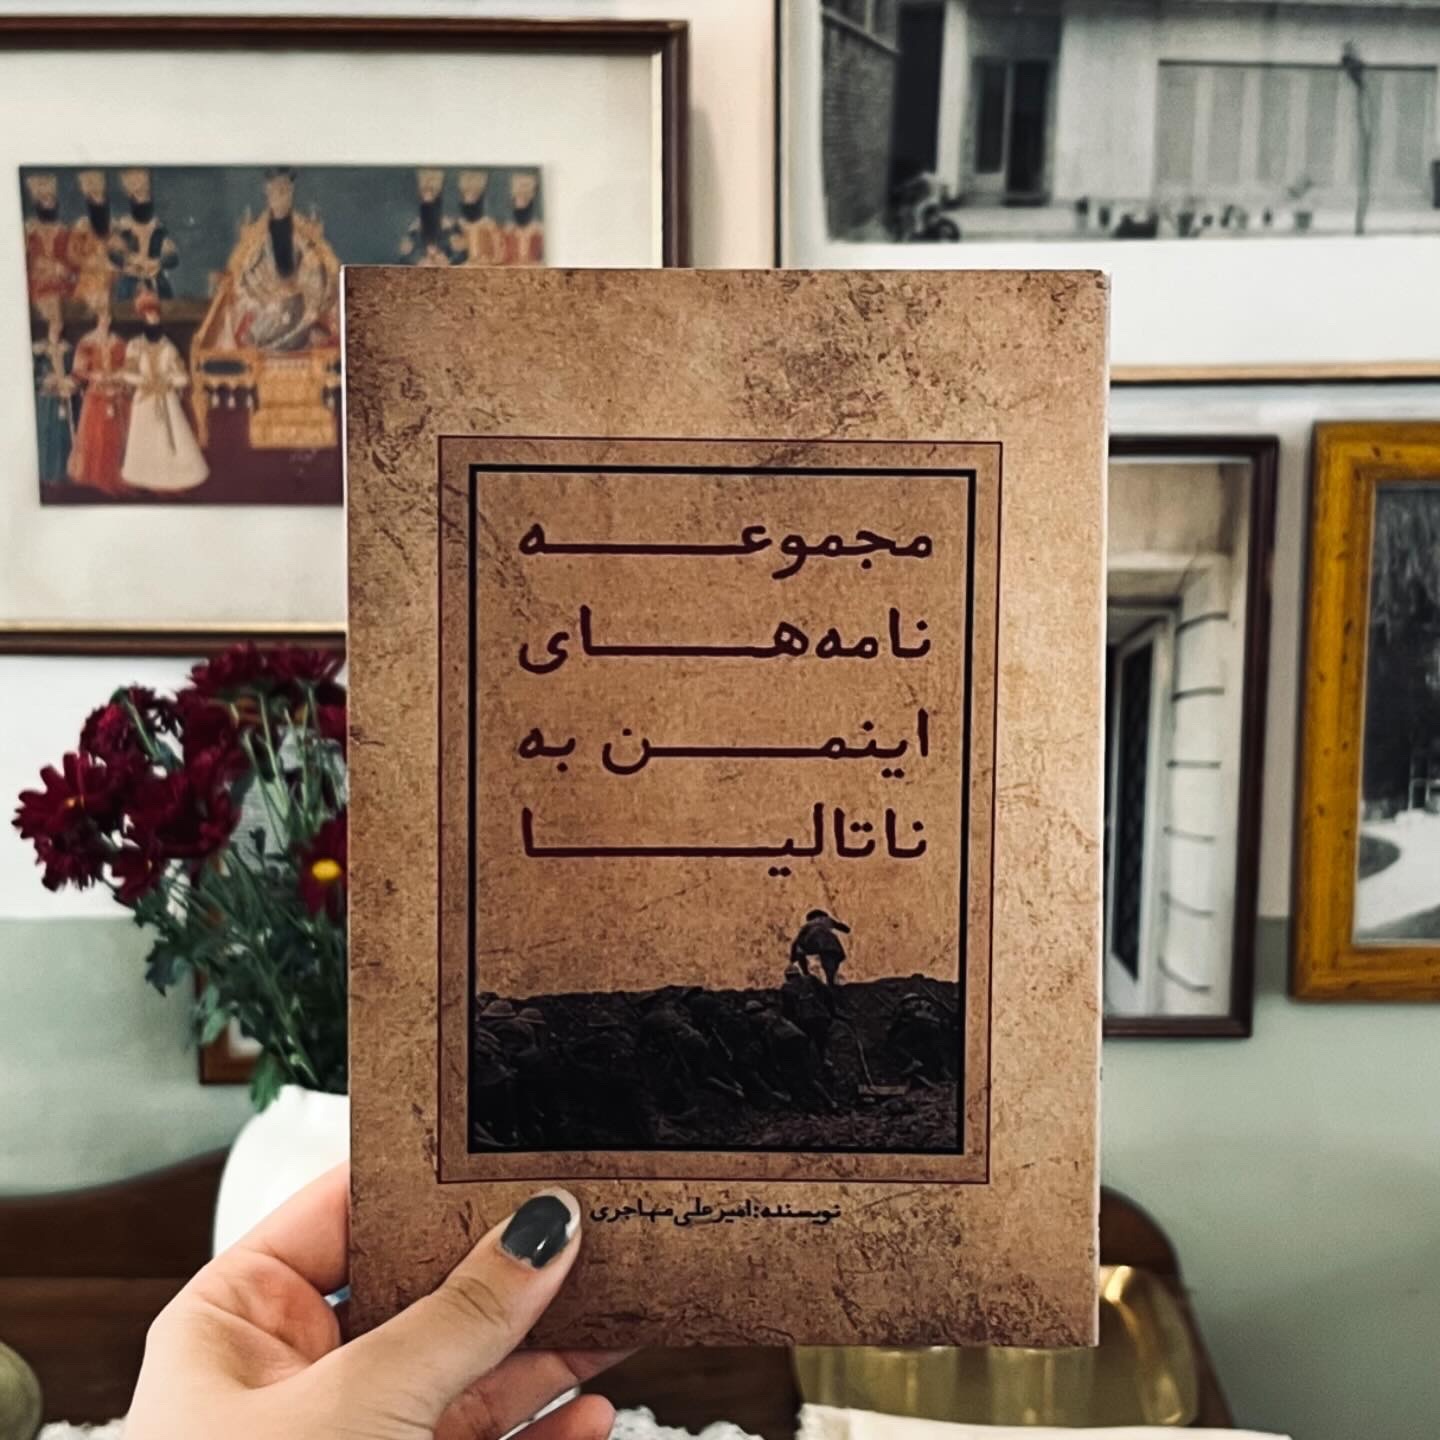 مجموعه
نامه‌های
اینمن به
ناتالیا
نویسنده: امیرعلی مهاجری